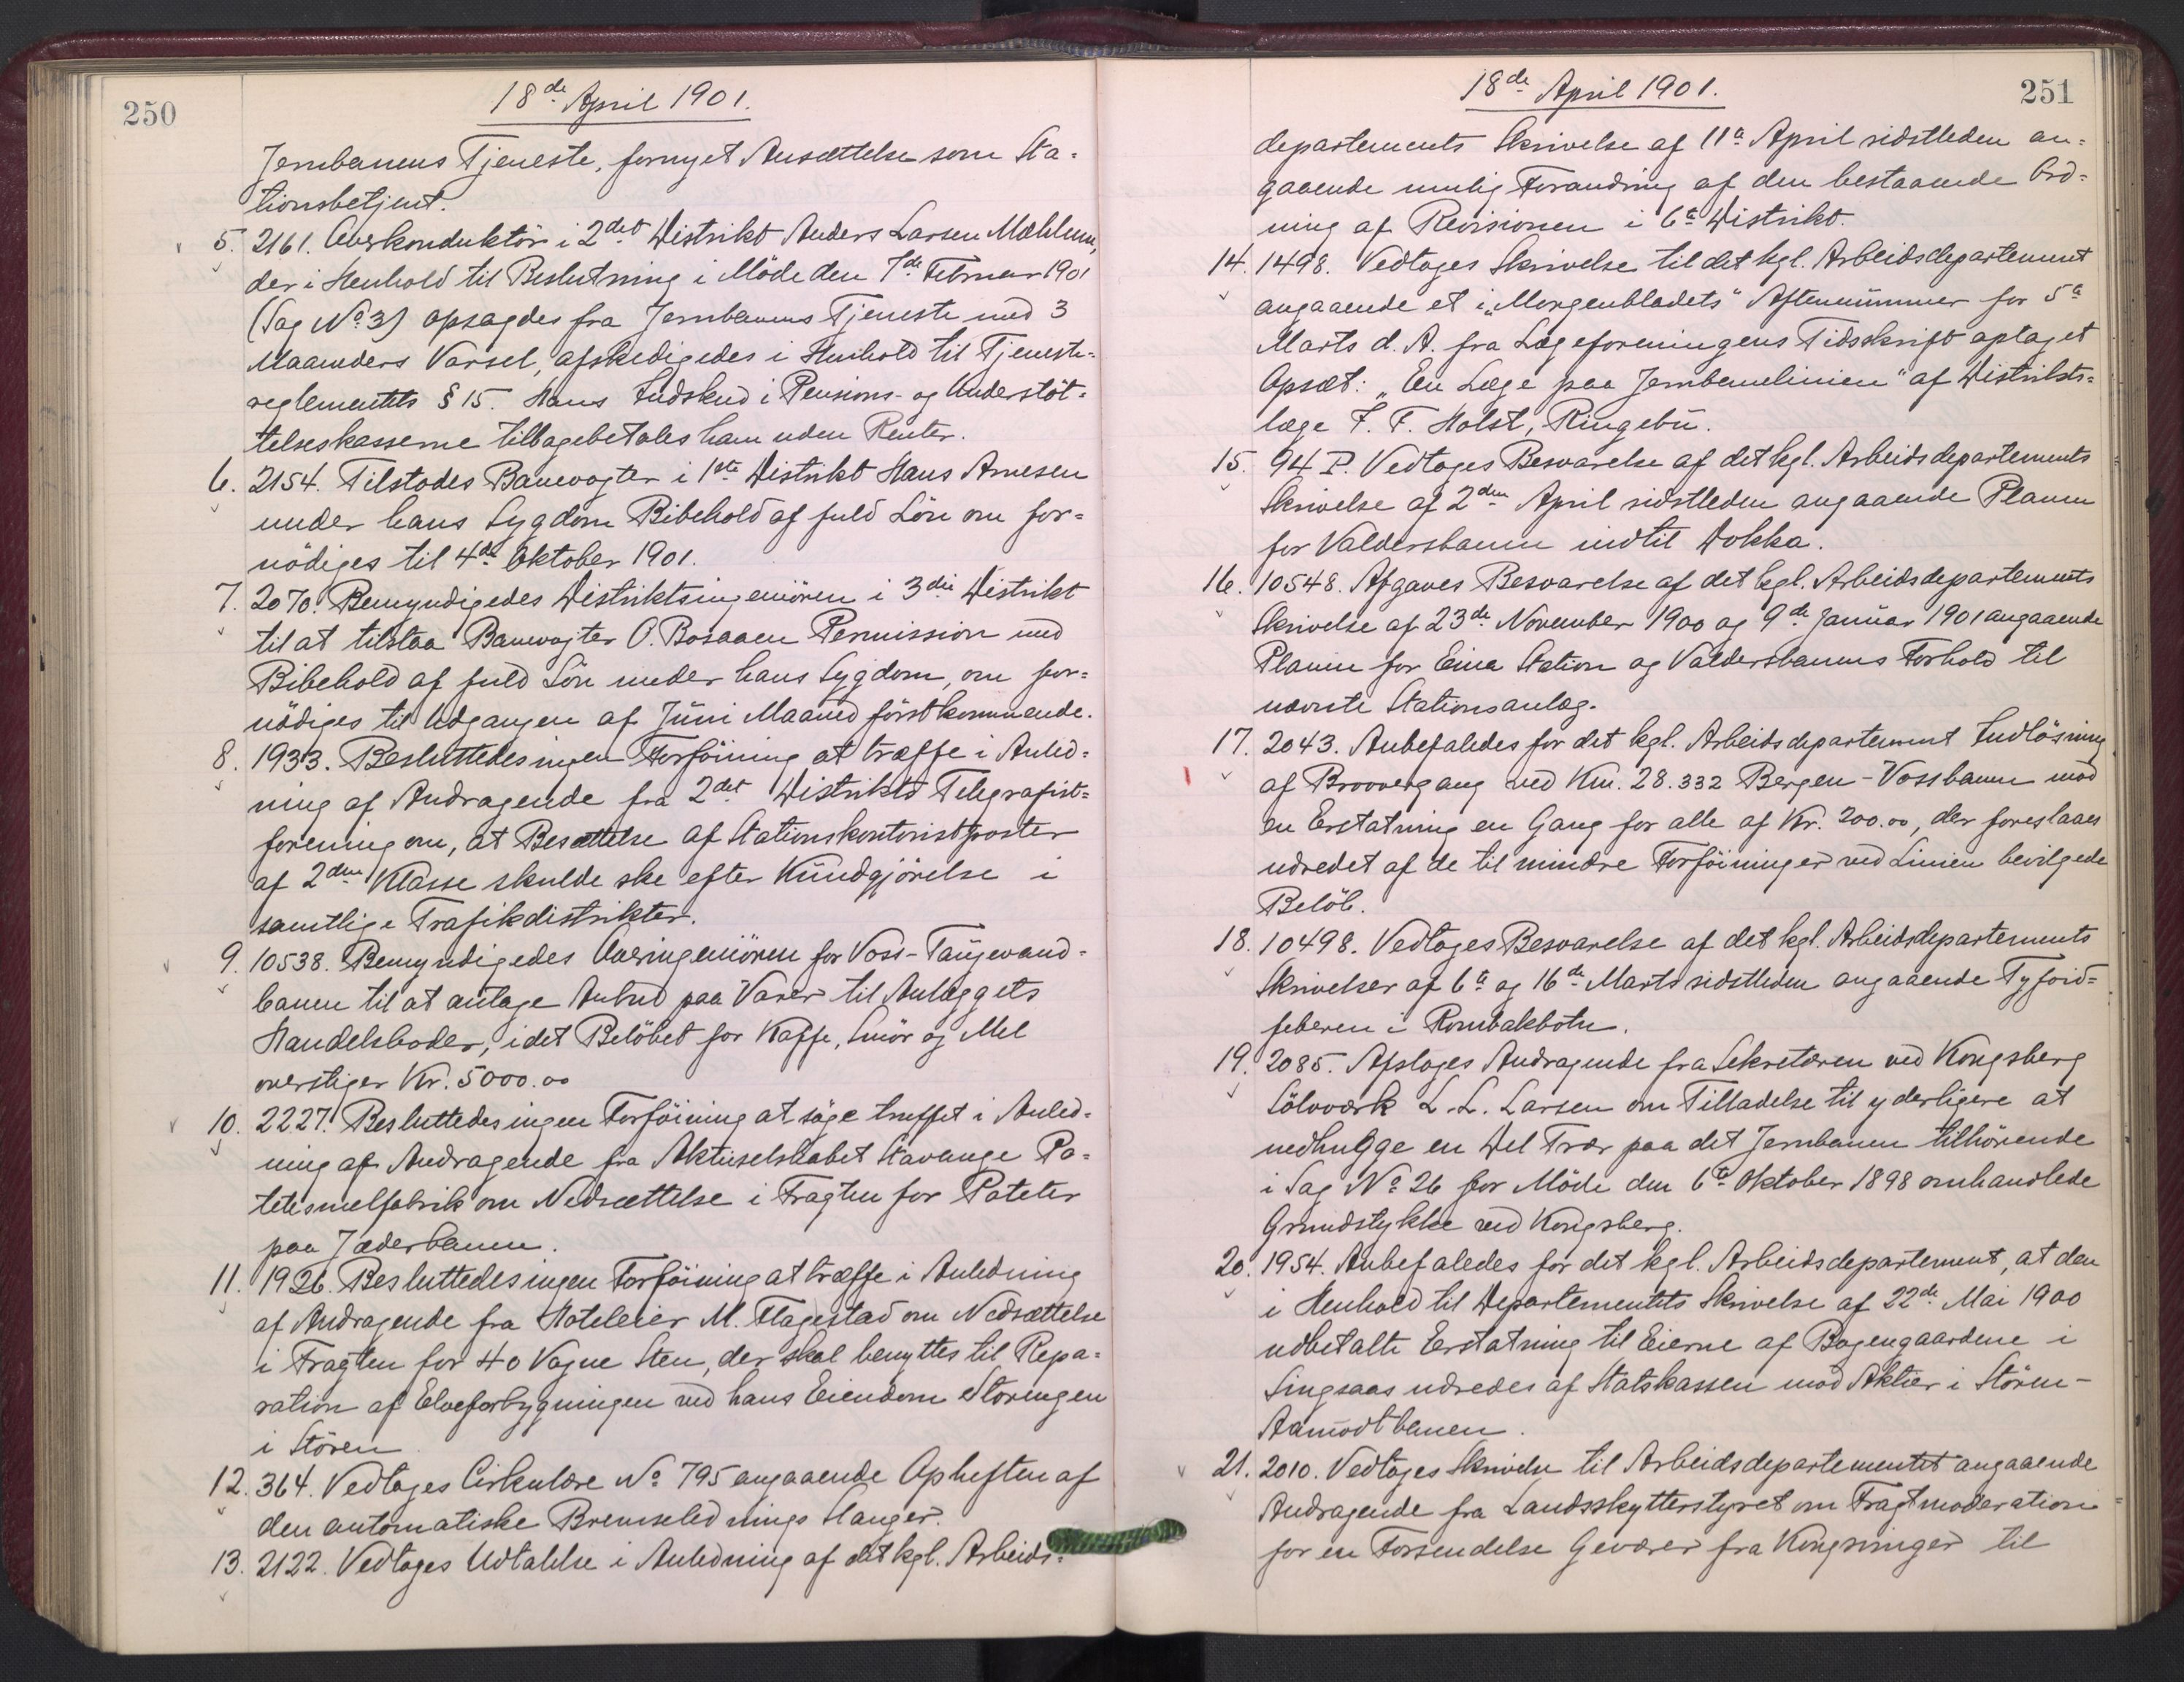 250
18de April 1901.
Jernbanens Tjeneste, fornyet Ansættelse som Sta=
tionsbetjent.
5. 2161. Overkonduktör i 2det Distrikt Anders Larsen Mæhlum,
der i Henhold til Beslutning i Möde den 7de Februar 1901
(Sag No 3) opsagdes fra Jernbanens Tjeneste med 3
Maaneders Varsel, afskedigedes i Henhold til Tjeneste=
reglementets § 15. Hans Indskud i Pensions- og Understöt=
telseskasserne tilbagebetales ham uden Renter.
6. 2154. Tilstodes Banevogter i 1ste Distrikt Hans Arnesen
under hans Sygdom Bibehold af fuld Lön om for=
nödiges til 4de Oktober 1901.
7. 2070. Bemyndigedes Distriktsingeniören i 3die Distrikt
til at tilstaa Banevogter O. Bosaaen Permission med
Bibehold af fuld Lön under hans Sygdom, om for=
nödiges til Udgangen af Juni Maaned förstkommende.
8. 1933. Besluttedes ingen Forföining at træffe i Anled=
ning af Andragende fra 2det Distrikts Telegrafist=
forening om, at Besættelse af Stationskontoristposter
af 2den Klasse skulde ske efter Kundgjörelse i
samtlige Trafikdistrikter.
9. 10538. Bemyndigedes Overingeniören for Voss-Taugevand=
banen til at antage Anbud paa Varer til Anlæggets
Handelsboder, idet Belöbet for Kaffe, Smör og Mel
overstiger Kr. 5000.00
10. 2227. Besluttedes ingen Forföining at söge truffet i Anled=
ning af Andragende fra Aktieselskabet Stavange Po=
tetesmelfabrik om Nedsættelse i Fragten for Poteter
paa Jæderbanen.
11. 1926. Besluttedes ingen Forföining at træffe i Anledning
af Andragende fra Hoteleier M. Flagestad om Nedsættelse
i Fragten for 40 Vogne Sten, der skal benyttes til Repa=
ration af Elveforbygningen ved hans Eiendom Störingen
i Stören
12. 364. Vedtoges Cirkulære No 795 angaaende Ophesten af
den automatiske Bremselednings Slanger.
13. 2122. Vedtoges Udtalelse i Anledning af det kgl. Arbeids=
251
18de April 1901.
departements Skrivelse af 11te April sidstleden an=
gaaende mulig Forandring af den bestaaende Ord=
ning af Revisionen i 6te Distrikt.
14. 1498. Vedtoges Skrivelse til det kgl. Arbeidsdepartement
angaaende et i „Morgenbladets" Aftennummer for 5te
Marts d. A. fra Lægeforeningens Tidsskrift optaget
Opsæt: „En Læge paa Jernbanelinien" af Distrikts=
læge F. F. Holst, Ringebu.
15. 94 P. Vedtoges Besvarelse af det kgl. Arbeidsdepartements
Skrivelse af 2den April sidstleden angaaende Planen
for Valdersbanen indtil Dokka.
16. 10548. Afgaves Besvarelse af det kgl. Arbeidsdepartements
Skrivelse af 23de November 1900 og 9de Januar 1901 angaaende
Planen for Eina Station og Valdersbanens Forhold til
nævnte Stationsanlæg.
17. 2043. Anbefaledes for det kgl. Arbeidsdepartement Indlösning
af Broovergang ved Km. 28.332 Bergen-Vossbanen mod
en Erstatning en Gang for alle af Kr. 200.00, der foreslaaes
udredet af de til mindre Forföininger ved Linien bevilgede
Belöb.
18. 10498. Vedtoges Besvarelse af det kgl. Arbeidsdepartements
Skrivelser af 6te og 16de Marts sidstleden angaaende Tyfoid=
feberen i Rombakbotn.
19. 2085. Afsloges Andragende fra Sekretæren ved Kongsberg
Sölvværk L. L. Larsen om Tilladelse til yderligere at
nedhugge en Del Trær paa det Jernbanen tilhörende
i Sag No 26 for Möde den 6te Oktober 1898 omhandlede
Grundstykke ved Kongsberg.
20. 1954. Anbefaledes for det kgl. Arbeidsdepartement, at den
i Henhold til Departementets Skrivelse af 22de Mai 1900
udbetalte Erstatning til Eierne af Bogengaardene i
Singsaas udredes af Statskassen mod Aktier i Stören-
Aamodtbanen.
21. 2010. Vedtoges Skrivelse til Arbeidsdepartementet angaaende
Andragende fra Landsskytterstyret om Fragtmoderation
for en Forsendelse Geværer fra Kongsvinger til